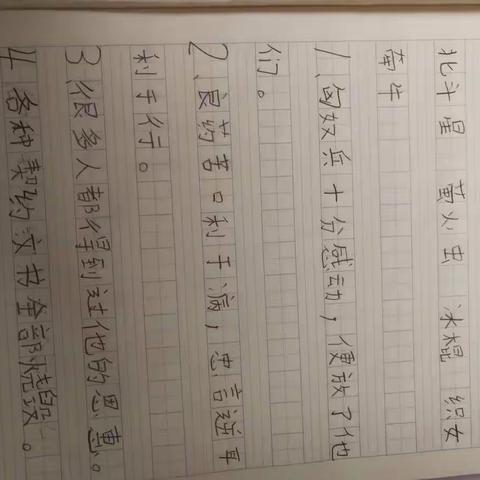 北斗星 萤火虫 冰棍 织女
牵牛
1、匈奴兵十分感动，便放了他
们。
2、良药苦口利于病，忠言逆耳
利于行。
3、很多人都得到过他的恩惠。
4、各种契约文书全部烧毁。